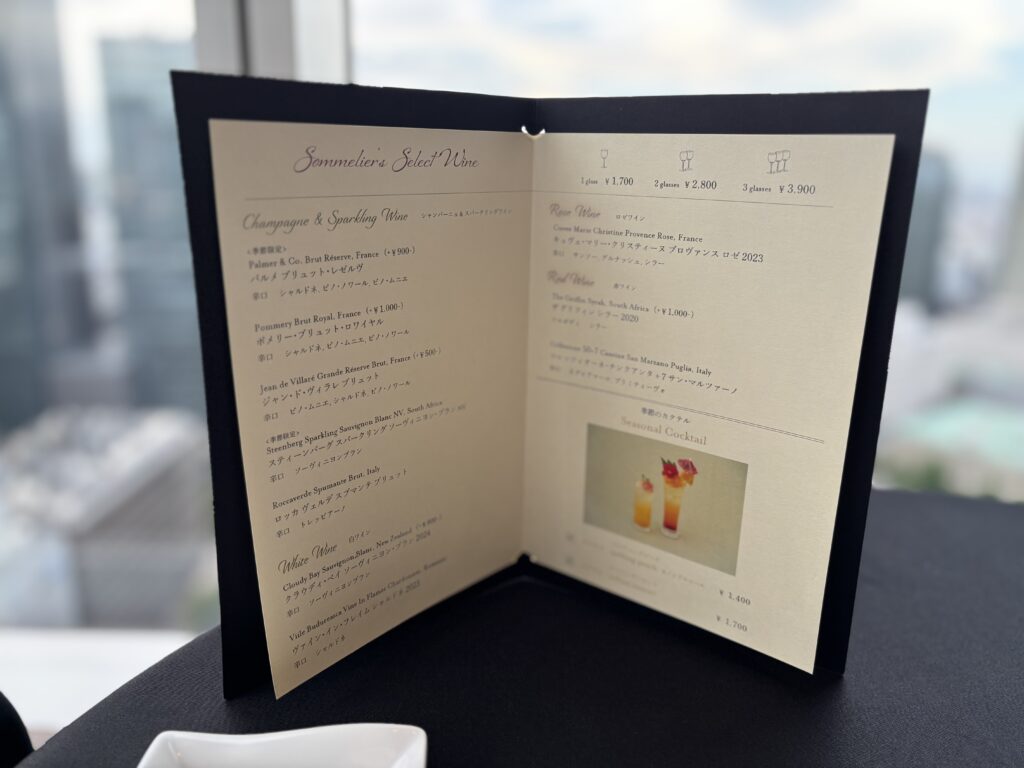 Sommelier's Select Wine
Champagne & Sparkling Wine シャンパーニュ&スパークリングワイン
<季節限定>
Palmer & Co. Brut Réserve, France (+¥900-)
パルメ ブリュット・レゼルヴ
辛口 シャルドネ、ピノ・ノワール、ピノ・ムニエ
Pommery Brut Royal, France (+¥1,000-)
ポメリー・ブリュット・ロワイヤル
辛口 シャルドネ、ピノ・ムニエ、ピノ・ノワール
Jean de Villaré Grande Réserve Brut, France (+¥500-)
ジャン・ド・ヴィラレ ブリュット
辛口 ピノ・ムニエ、シャルドネ、ピノ・ノワール
<季節限定>
Steenberg Sparkling Sauvignon Blanc NV, South Africa
スティーンバーグ スパークリング ソーヴィニヨン・ブラン NV
辛口 ソーヴィニヨンブラン
Roccaverde Spumante Brut, Italy
ロッカ ヴェルデ スプマンテ ブリュット
辛口 トレッビアーノ
White Wine 白ワイン
Cloudy Bay Sauvignon Blanc, New Zealand
クラウディ・ベイ ソーヴィニヨン・ブラン 2024
辛口 ソーヴィニヨンブラン
Viile Budureasca Vine In Flames Chardonnay, Romania
ヴァイン・イン・フレイム シャルドネ 2023
辛口 シャルドネ
1 glass ¥1,700 2 glasses ¥2,800 3 glasses ¥3,900
Rose Wine ロゼワイン
Cuvee Marie Christine Provence Rose, France
キュヴェ・マリー・クリスティーヌ プロヴァンス ロゼ 2023
辛口 サンソー、グルナッシュ、シラー
Red Wine 赤ワイン
The Griffin Syrah, South Africa (+¥1,000-)
ザ グリフィン シラー 2020
フルボディ シラー
Collezione 50+7 Cantine San Marzano Puglia, Italy
コレッツィオーネ・チンクアンタ+7 サン・マルツァーノ
ネグロアマーロ、プリミティーヴォ
季節のカクテル
Seasonal Cocktail
¥1,400
¥1,700